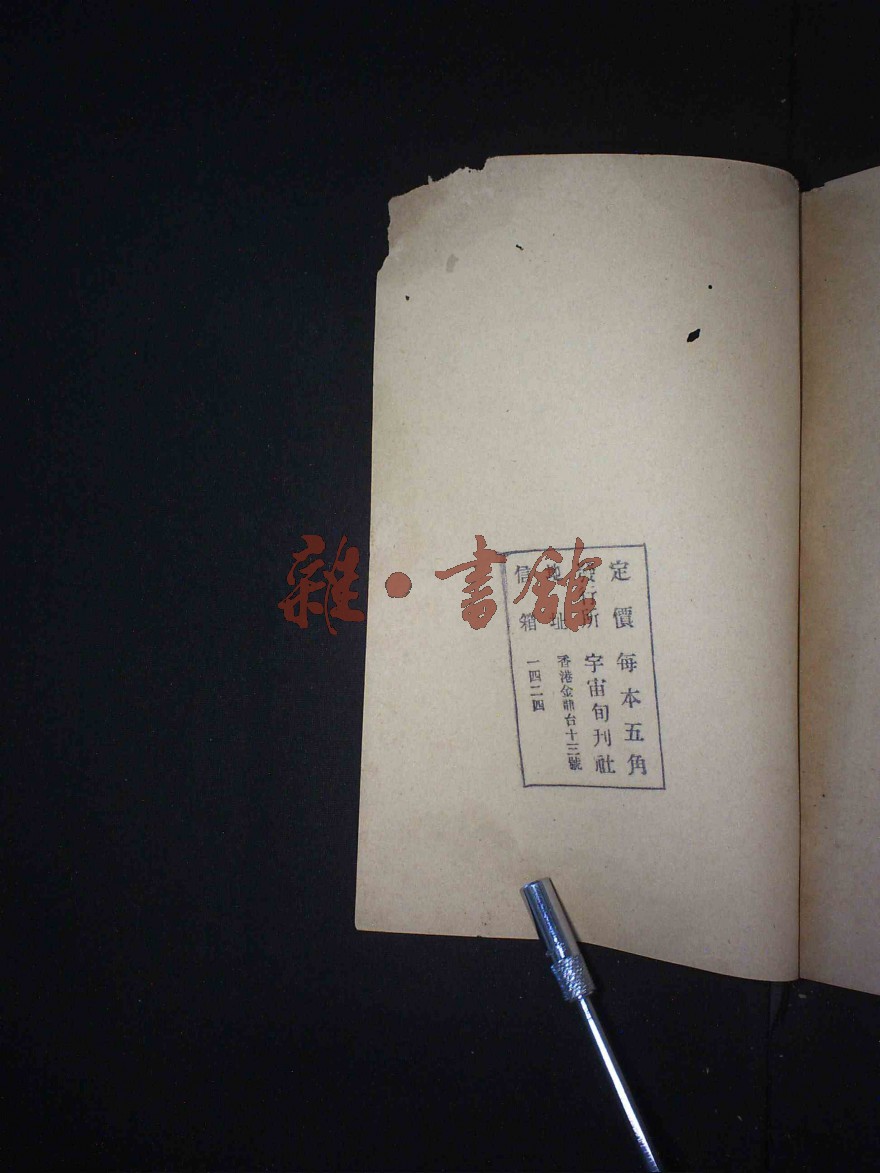 定價 每本五角
發行所 宇宙旬刊社
地址 香港金龍台十三號
信箱 一四二四
雜·書館